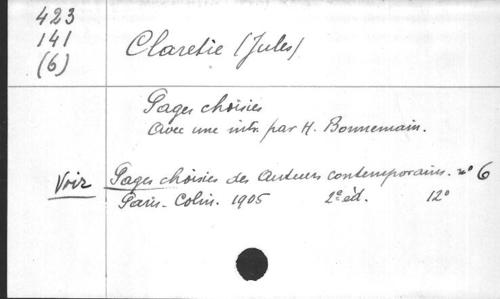 423
141
(6)
Claretie (Jules)
Pages choisies
avec une intr. par H. Bonnemain.
Voir Pages choisies des Auteurs contemporains. n° 6
Paris. Colin. 1905 2e éd. 12°